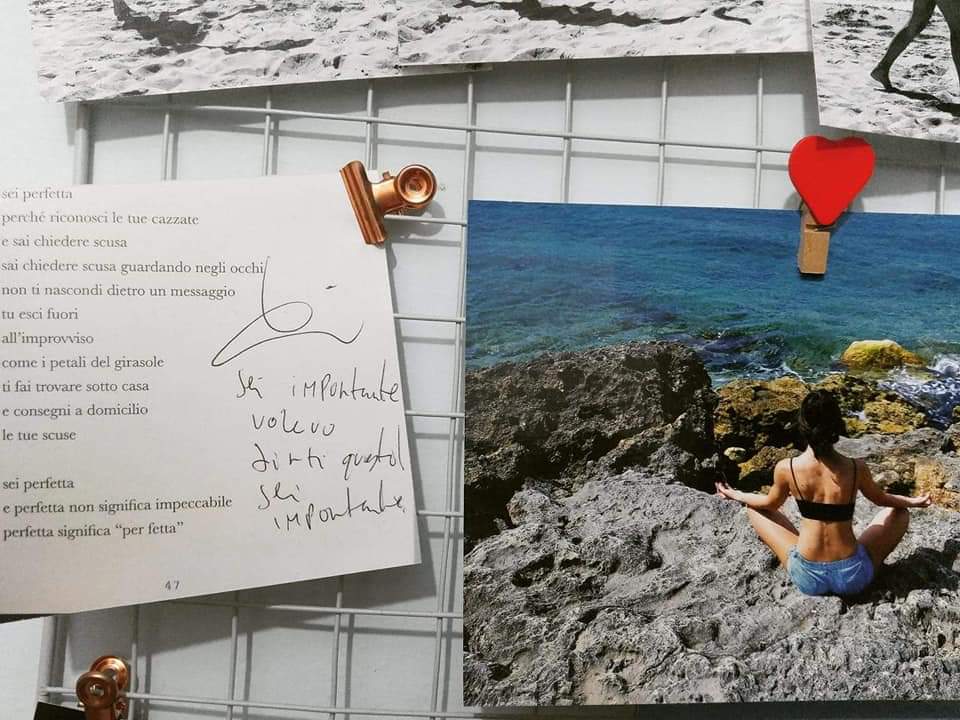 sei perfetta
perché riconosci le tue cazzate
e sai chiedere scusa
sai chiedere scusa guardando negli occhi
non ti nascondi dietro un messaggio
tu esci fuori
all'improvviso
come i petali del girasole
ti fai trovare sotto casa
e consegni a domicilio
le tue scuse
sei perfetta
e perfetta non significa impeccabile
perfetta significa "per fetta"
47
Sei importante
volevo
dirti questo
sei
importante